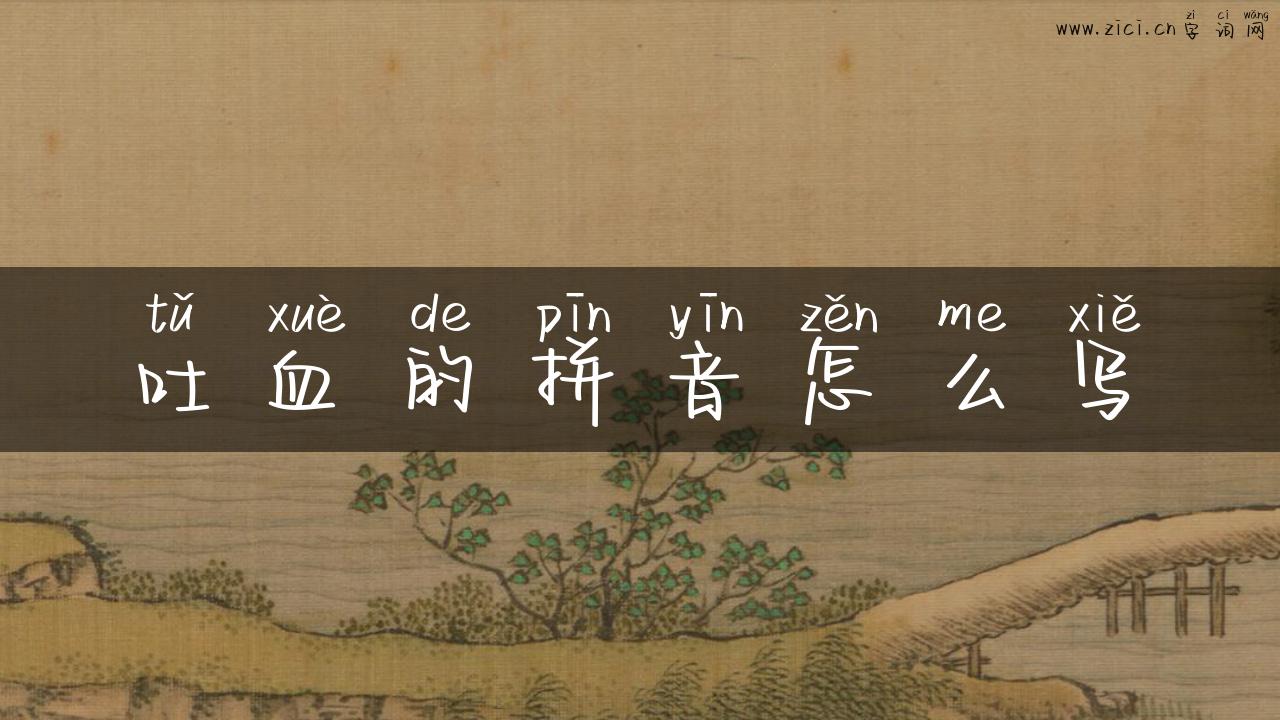 zì cí wǎng
www.zici.cn 字词网
tǔ xuè de pīn yīn zěn me xiě
吐血的拼音怎么写